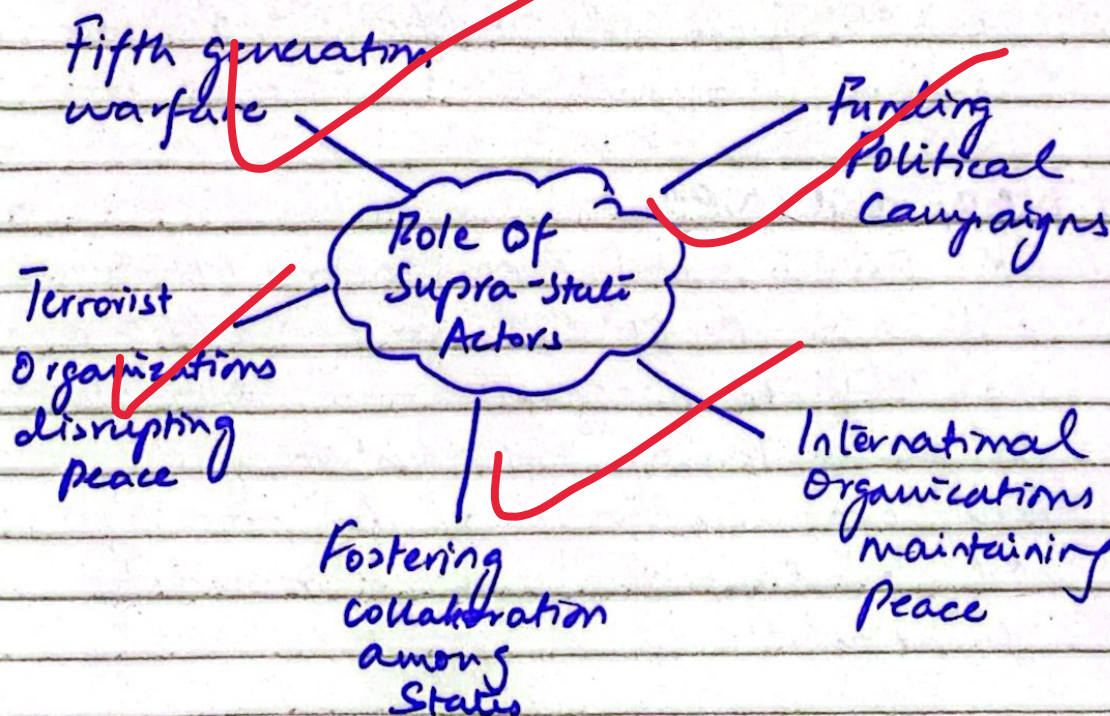 Fifth generation
warfare
Funding
Political
Campaigns
Role Of
Supra-State
Actors
Terrorist
Organizations
disrupting
peace
International
Organizations
maintaining
peace
Fostering
collaboration
among
States